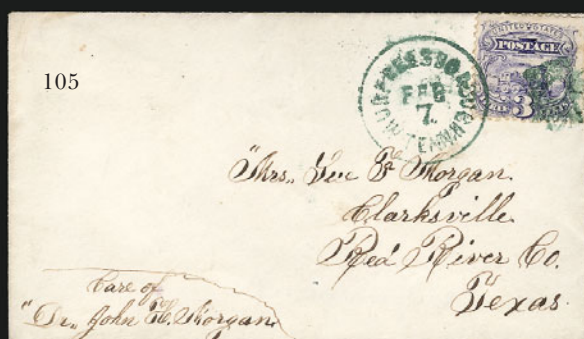 105
MURFREESBOROUGH
FEB
7.
TENN
UNITED STATES
POSTAGE
3
"Mrs. Sue F. Morgan.
Clarksville.
Red River Co.
Texas.
Care of
"Dr. John H. Morgan